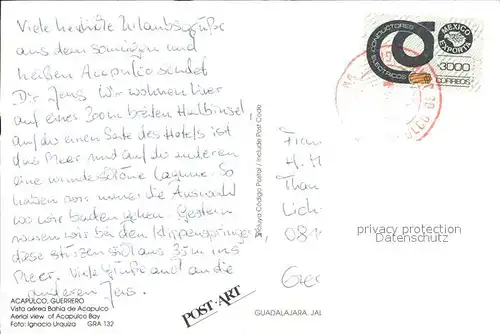 Viele herzliche Urlaubsgrüße
aus dem sonnigen und
heißen Acapulco sendet
Dir Jens. Wir wohnen hier
auf einer 300m breiten Halbinsel,
auf der einen Seite des Hotels ist
das Meer und auf der anderen
eine wunderschöne Lagune. So
haben wir immer die Auswahl
wo wir baden gehen. Gestern
waren wir bei den Klippenspringern,
diese stürzen sich aus 35m ins
Meer. Viele Grüße auch an die
anderen Jens.
ACAPULCO, GUERRERO
Vista aérea Bahía de Acapulco
Aerial view of Acapulco Bay
Foto: Ignacio Urquiza GRA 132
POST-ART
Incluya Código Postal / Include Post Code
GUADALAJARA, JAL
CONDUCTORES
ELECTRICOS
MEXICO
EXPORTA
3000
CORREOS
H.
privacy protection
Datenschutz